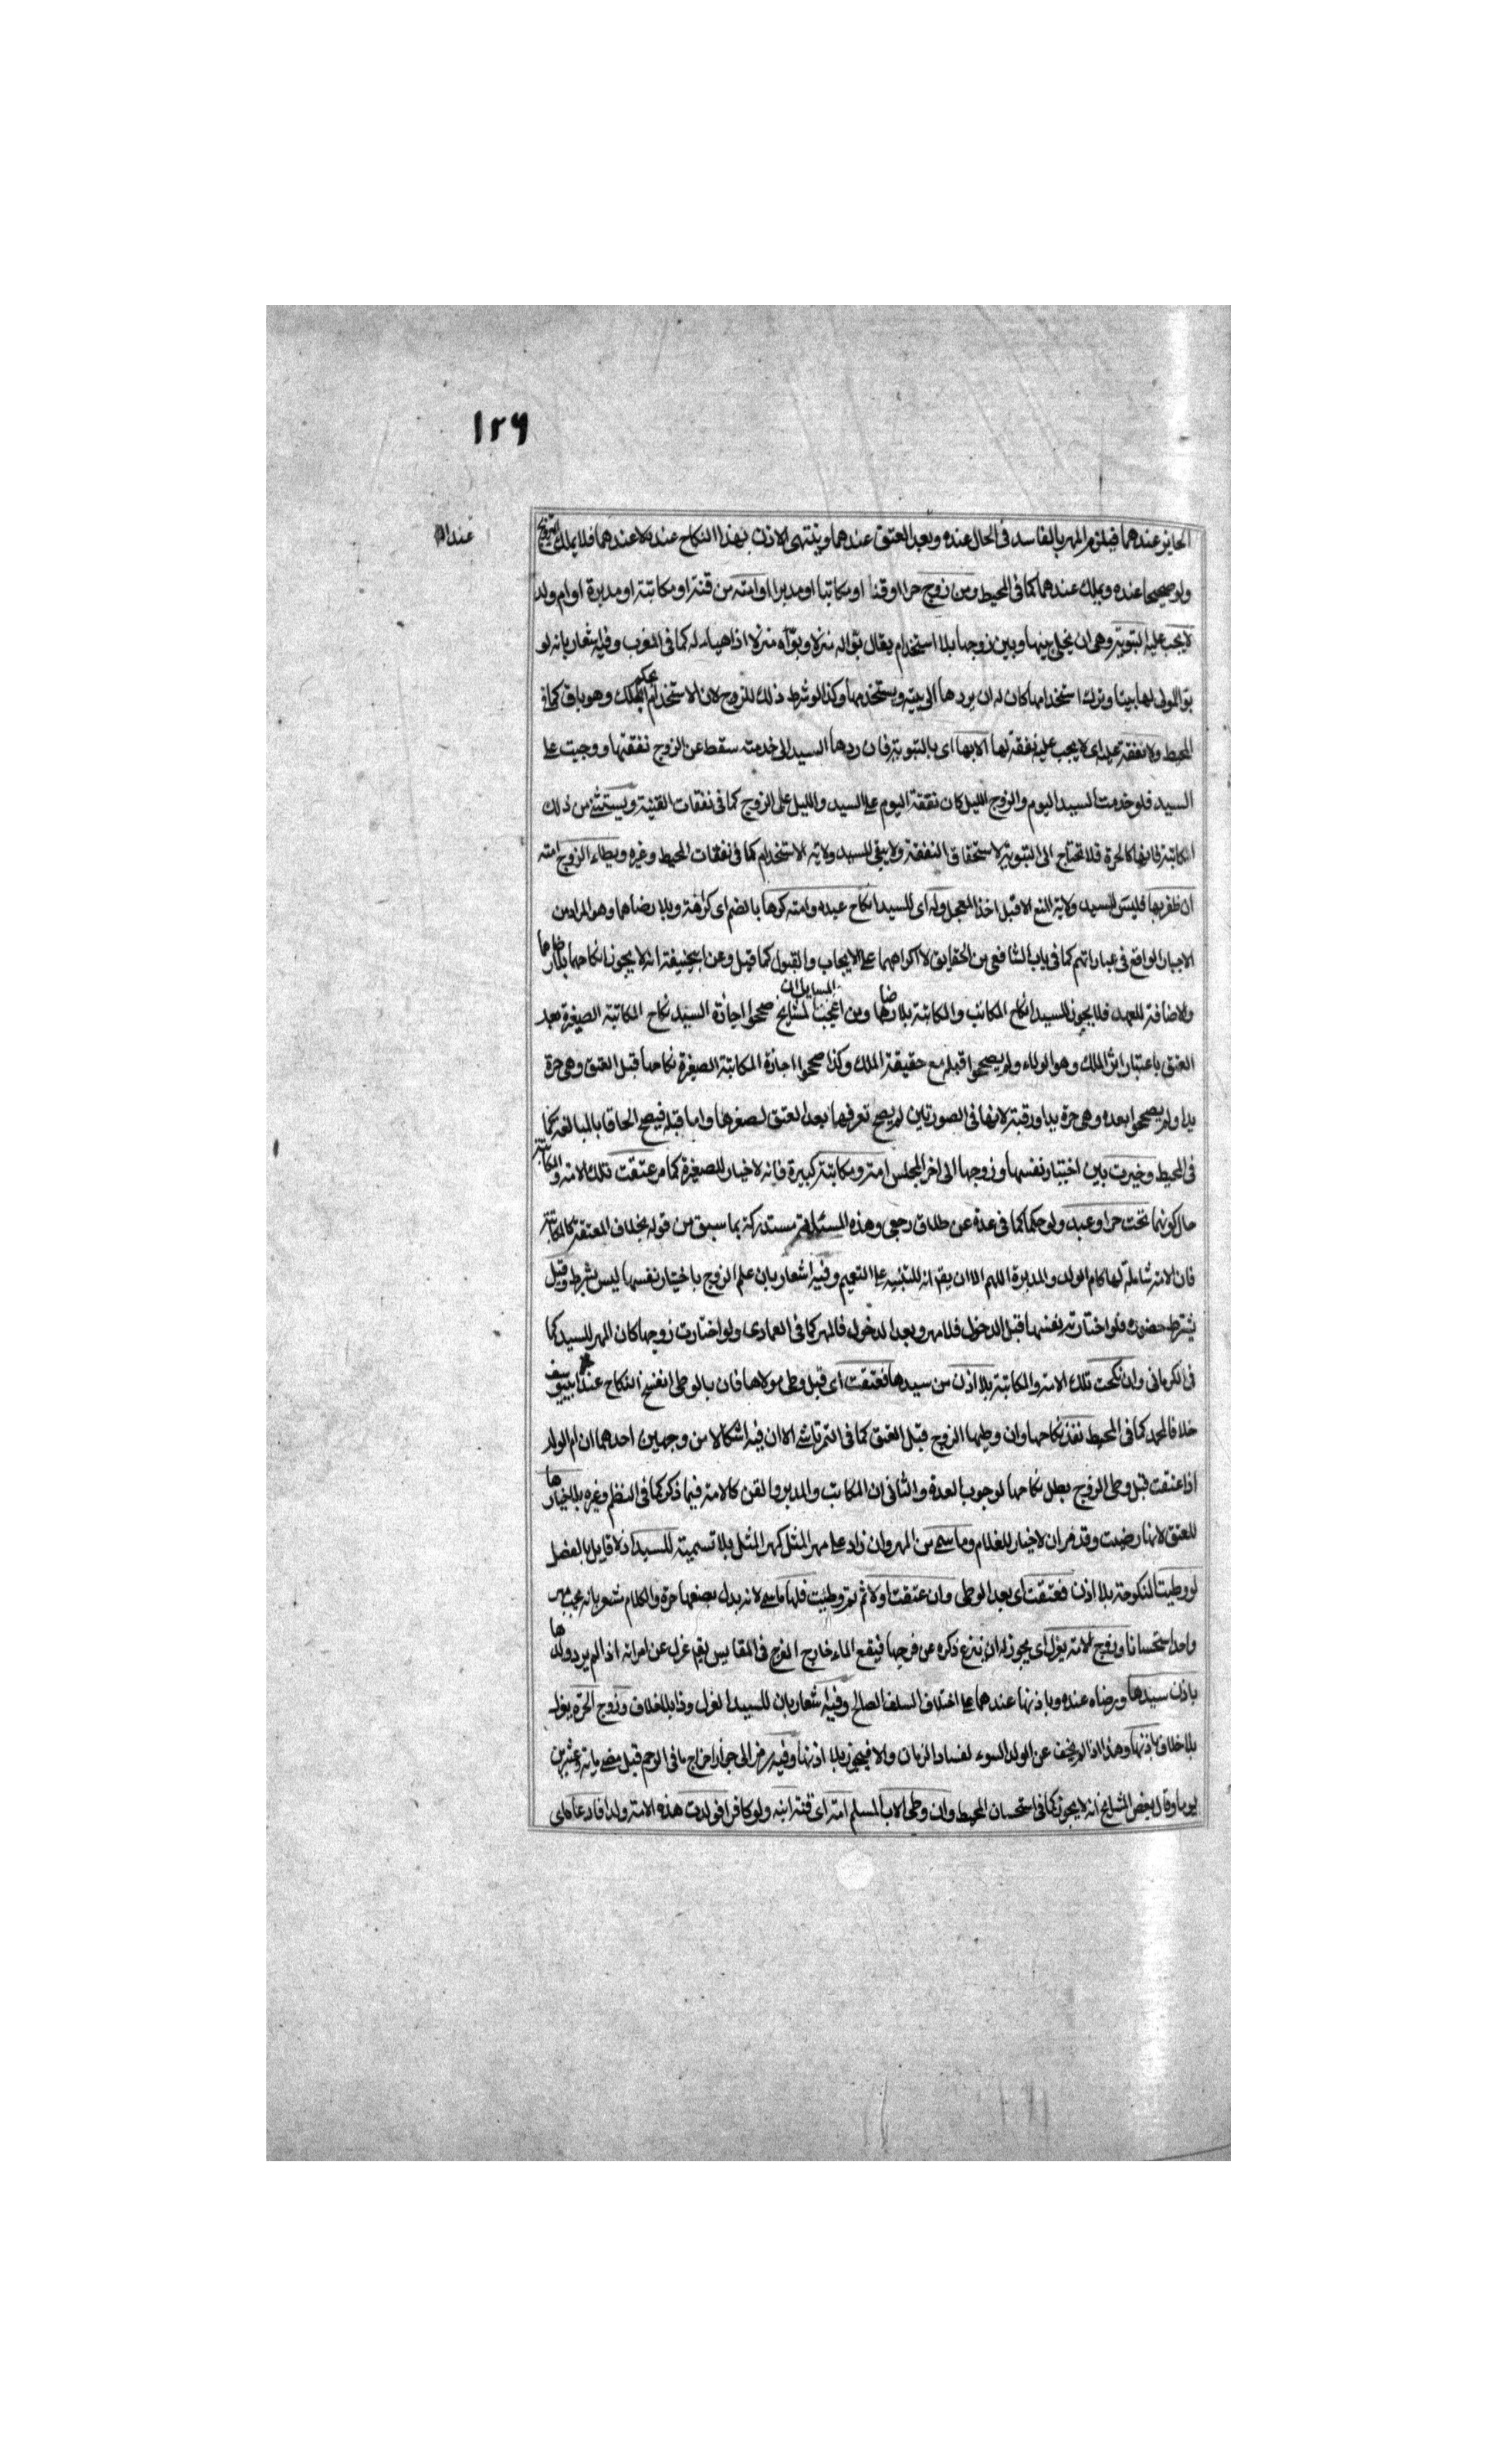 ١٢٩
عنداله
الجايز عندهما فيلزم المهر بالفاسد فى الحال عنده وبعد العتق عندهما وينتهى الاذن بهذا النكاح عنده لا عندهما فلا يملك التزوج
ولو صحيحا عنده ويملك عندهما كما فى المحيط ومن زوج حرا او قنا او مكاتبا او مدبرا او امته من قنة او مكاتبة او مدبرة او ام ولد
لا يجب عليه التبوية وهى ان يخلى بينها وبين زوجها بلا استخدام يقال بوا له منزلا وبوأه منزلا اذا هياء له كما فى المغرب وفيه اشعار بانه لو
بوا المولى لها بيتا وترك استخدامها كان له ان يردها الى بيته ويستخدمها وكذا لو شرط ذلك للزوج لان الاستخدام بحكم الملك وهو باق كما فى
المحيط ولا نفقة عليه اى لا يجب عليه نفقة لها الا بها اى بالتبوية فان ردها السيد الى خدمته سقط عن الزوج نفقتها ووجبت على
السيد فلو خدمت السيد اليوم والزوج الليل كان نفقة اليوم على السيد والليل على الزوج كما فى نفقات القنية ويستثنى من ذلك
المكاتبة فانها كالحرة فلا تحتاج الى التبوية لاستحقاق النفقة ولا يبقى للسيد ولاية الاستخدام كما فى نفقات المحيط وغيره ويطاء الزوج امته
ان ظفر بها فليس للسيد ولاية المنع الا قبل اخذ المعجل وله اى للسيد انكاح عبده وامته كرها بالضم اى كراهة وبلا رضاهما وهو المراد من
الاجبار الواقع فى عباراتهم كما فى باب الشافعى من الحقايق لا اكراههما على الايجاب والقبول كما قيل وعن ابيحنيفة انه لا يجوز انكاحهما بلا رضاهما
والاضافة للعهد فلا يجوز للسيد انكاح المكاتب والمكاتبة بلا رضاهما ومن اعجب المسايل ان المشايخ صححوا اجازة السيد نكاح المكاتبة الصغيرة بعد
العتق باعتبار اثر الملك وهو الولاء ولم يصححوا قبله مع حقيقة الملك وكذا صححوا اجازة المكاتبة الصغيرة نكاحها قبل العتق وهى حرة
يدا ولم يصححوا بعده وهى حرة يدا ورقبة لانها فى الصورتين لم يصح تصرفها بعد العتق لصغرها واما قبله فيصح الحاقا بالبالغة كما
فى المحيط وخيرت بين اختيار نفسها وزوجها الى اخر المجلس امة ومكاتبة كبيرة فانه لا خيار للصغيرة كما مر عتقت تلك الامة والمكاتبة
حال كونها تحت حر او عبد ولو حكما كما فى عدة عن طلاق رجعى وهذه المسئلة مستدركة بما سبق من قوله بخلاف المعتقة كالمكاتبة
فان الامة شاملة لها كام الولد والمدبرة اللهم الا ان يقال انه للتنبيه على التعميم وفيه اشعار بان علم الزوج باختيار نفسها ليس بشرط وقيل
يشترط حضوره فلو اختارت نفسها قبل الدخول فلا مهر وبعد الدخول فالمهر كما فى العمادى ولو اختارت زوجها كان المهر للسيد كما
فى الكرمانى وان نكحت تلك الامة والمكاتبة بلا اذن من سيدها فعتقت اى قبل وطى مولاها فان بالوطى انفسخ النكاح عند ابى يوسف
خلافا لمحمد كما فى المحيط نفذ نكاحها وان وطيها الزوج قبل العتق كما فى التمرتاشى الا ان فيه اشكالا من وجهين احدهما ان ام الولد
اذا عتقت قبل وطى الزوج بطل نكاحها لوجوب العدة والثانى ان المكاتب والمدبر والقن كالامة فيما ذكر كما فى النظم وغيره بلا خيار لها
للعتق لانها رضيت وقد مر ان لا خيار للغلام وما سمى من المهر وان زاد على مهر المثل كمهر المثل بلا تسمية للسيد اذ لا قايل بالفصل
لو وطيت المنكوحة بلا اذن فعتقت اى بعد الوطى وان عتقت اولا ثم وطئت فلها ما سمى لانه بدل بضعها حرة والكلام مشعر بانه يجب مهر
واحد استحسانا وزوج الامة يعزل اى يجوز له ان ينزع ذكره عن فرجها فيقع الماء خارج الفرج فى المقاييس يقال عزل عن امرأته اذا لم يرد ولدها
باذن سيدها ورضاه عنده وباذنها عندهما على اختلاف السلف الصالح وفيه اشعار بان للسيد العزل وذا بلا خلاف وزوج الحرة يعزل
بلا خلاف باذنها وهذا اذا لم يخف عن الولد السوء لفساد الزمان والا فيجوز بلا اذنها وفيه رمز الى جواز اخراج ما فى الرحم قبل مضى ماية وعشرين
يوما وقال بعض المشايخ انه لا يجوز كما فى استحسان المحيط وان وطى الاب المسلم امته اى قنة ابنه ولو كافرا فولدت هذه الامة ولدا فادعاه اى